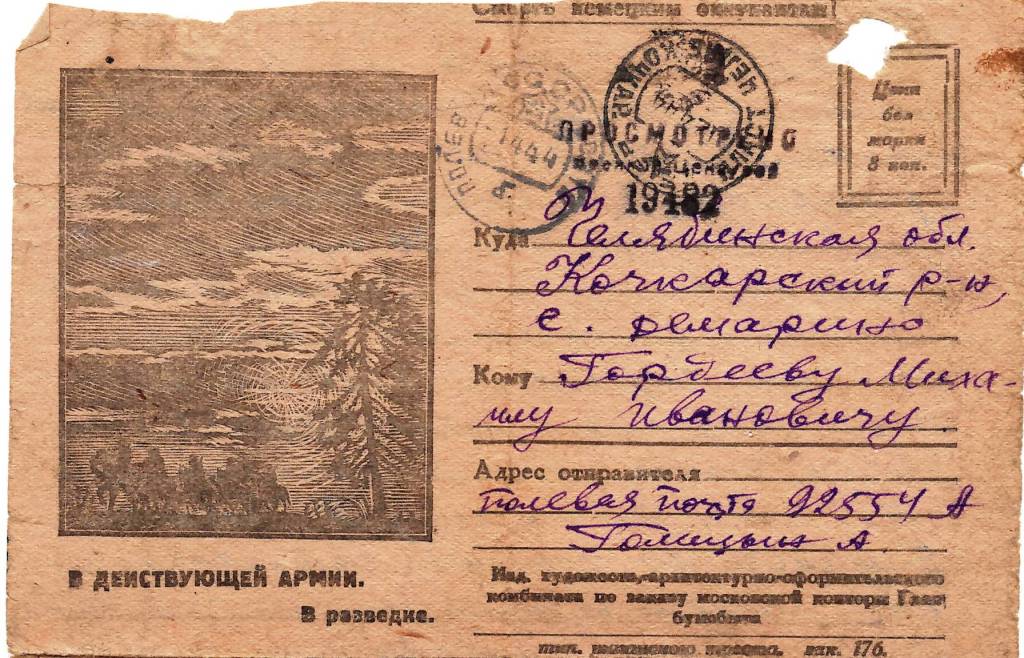 Смерть немецким оккупантам!
Цена
без
марки
8 коп.
ПРОСМОТРЕНО
19482
1444
Куда Челябинская обл.
Кочкарский р-н,
с. Демарино
Кому Гордееву Миха-
илу Ивановичу
Адрес отправителя
полевая почта 92554 А
Голицын А.
В ДЕЙСТВУЮЩЕЙ АРМИИ.
В разведке.
Изд. художеств.-архитектурно-оформительского
комбината по заказу московской конторы Глав
бумсбыта
тип. зак. 176.